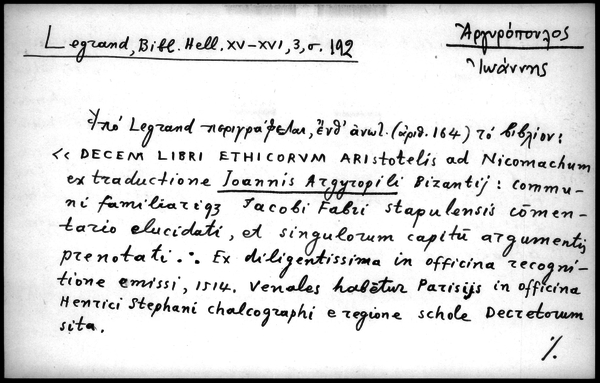 Legrand, Bibl. Hell. XV–XVI, 3, σ. 192
Ἀργυρόπουλος
Ἰωάννης
Ὑπό Legrand περιγράφεται, ἔνθ' ἀνωτ. (ἀριθ. 164) τό βιβλίον:
<< DECEM LIBRI ETHICORVM ARIstotelis ad Nicomachum
ex traductione Joannis Argyropili Bizantij : commu-
ni familiariqz Jacobi Fabri stapulensis cōmen-
tario elucidati, et singulorum capitū argumentis
prenotati .·. Ex diligentissima in officina recogni-
tione emissi, 1514. Venales habētur Parisijs in officina
Henrici Stephani chalcographi e regione schole Decretorum
sita.
%.